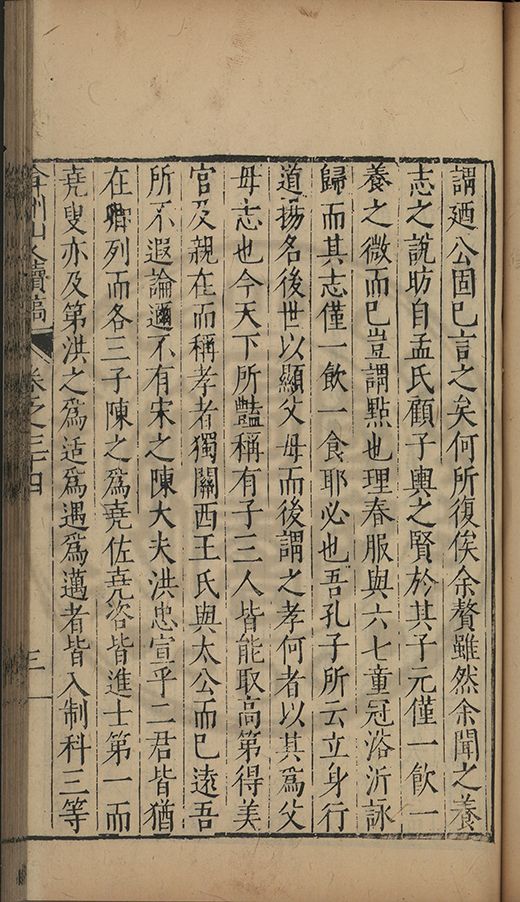 謂廼公固已言之矣何所復俟余贅雖然余聞之養
志之說昉自孟氏顧子輿之賢於其子元僅一飲一
養之微而已豈謂點也理春服與六七童冠浴沂詠
歸而其志僅一飲一食耶必也吾孔子所云立身行
道揚名後世以顯父母而後謂之孝何者以其為父
母志也今天下所豔稱有子三人皆能取高第得美
官及親在而稱孝者獨關西王氏與太公而已遠吾
所不遐論邇不有宋之陳大夫洪忠宣乎二君皆猶
在卿列而各三子陳之為堯佐堯咨皆進士第一而
堯叟亦及第洪之為适為遇為邁者皆入制科三等
弇州山人續稿 卷之三十四 三